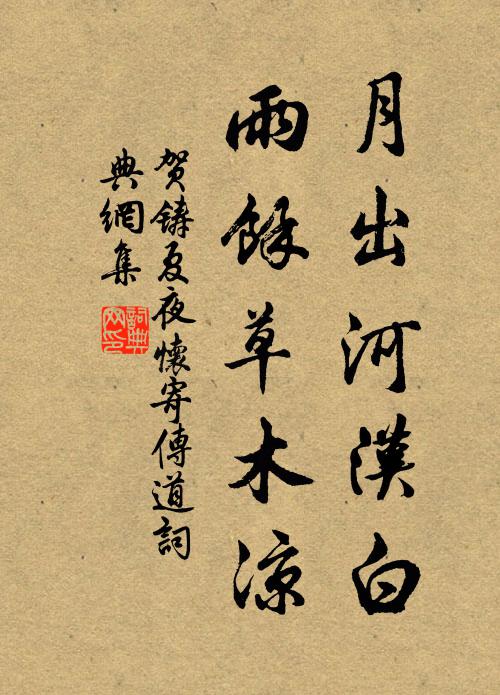 月出河漢白
雨餘草木涼
賀鑄夏夜懷寄傳道詞
典網集
詞典
网印